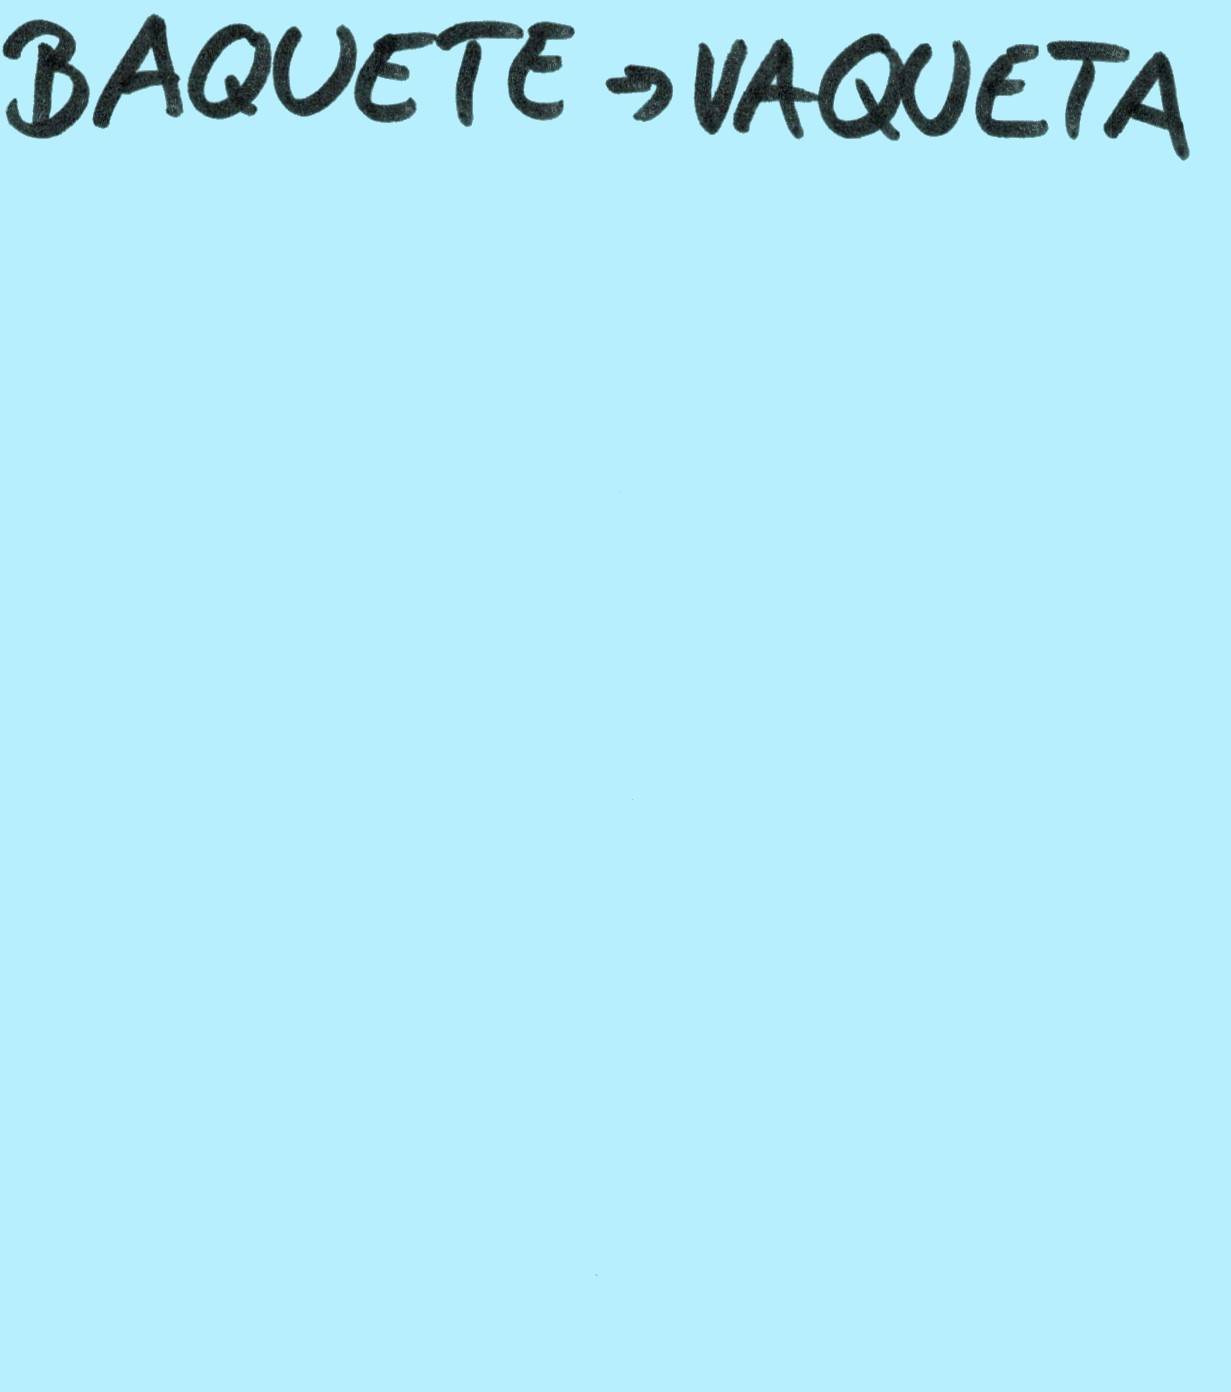 BAQUETE → VAQUETA